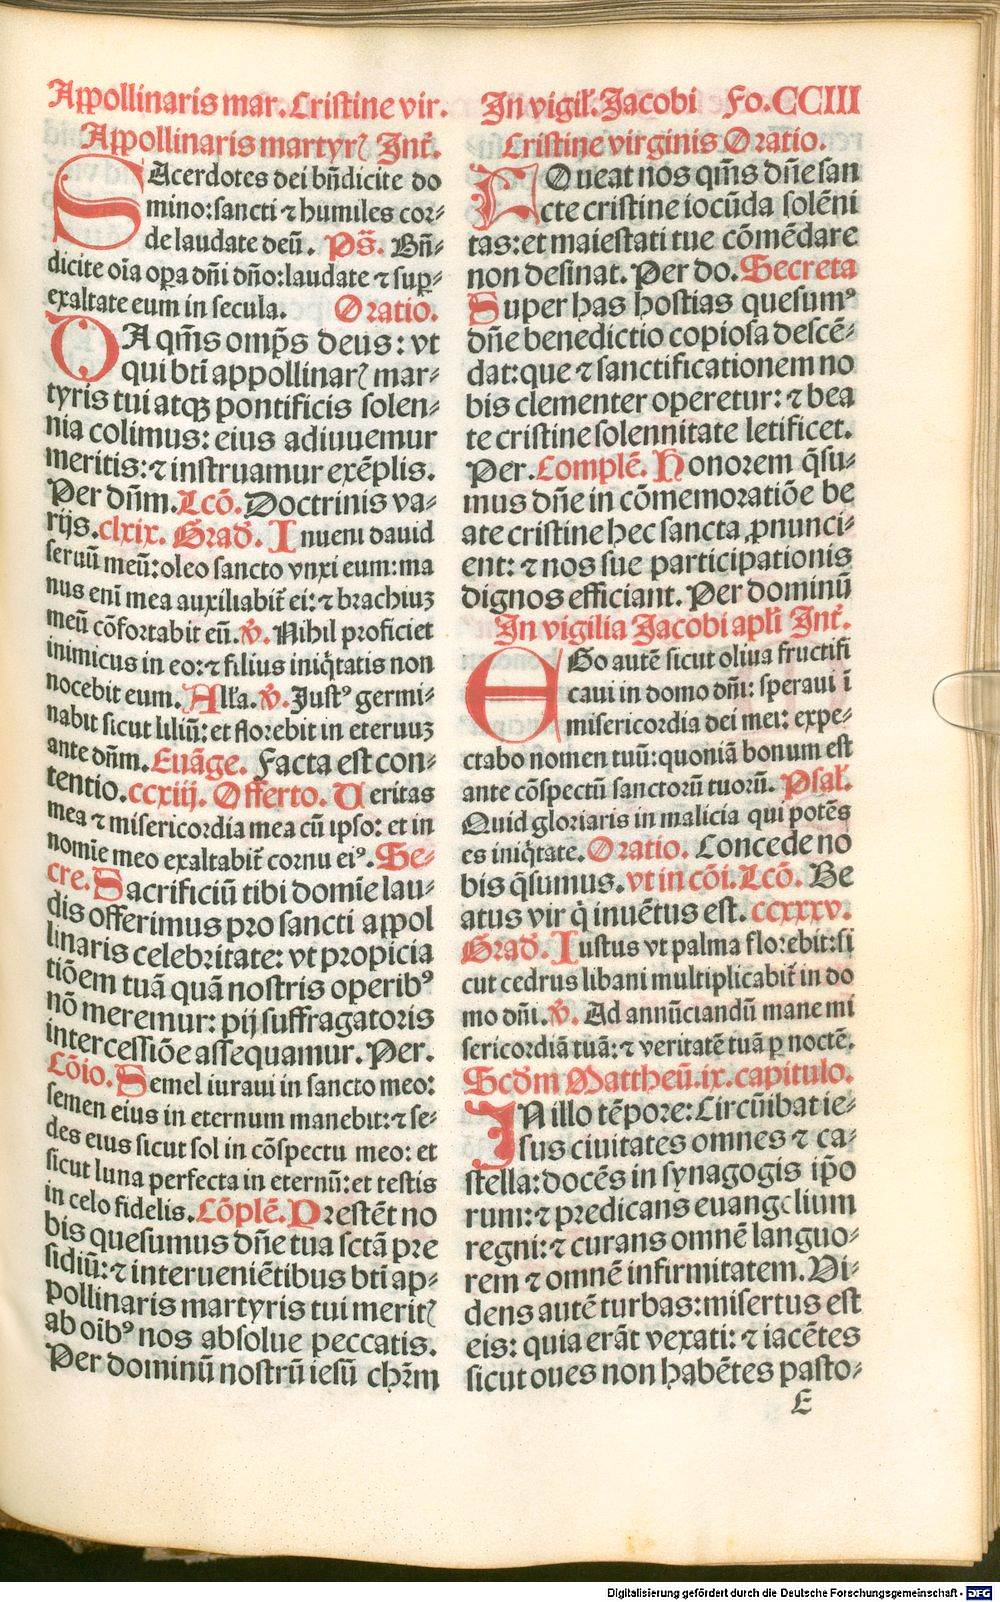 Appollinaris mar. Cristine vir.
Appollinaris martyrꝭ Int̄.
SAcerdotes dei bn̄dicite do
mino: sancti ⁊ humiles cor⸗
de laudate deū. Ps̄. Bn̄⸗
dicite oīa oꝑa dn̄i dn̄o: laudate ⁊ suꝑ⸗
exaltate eum in secula. Oratio.
DA qm̄s omp̄s deus: vt
qui bt̄i appollinarꝭ mar⸗
tyris tui atqꝫ pontificis solen⸗
nia colimus: eius adiuuemur
meritis: ⁊ instruamur exēplis.
Per dn̄m. Lcō. Doctrinis va⸗
rijs. clxix. Grad̄. Inueni dauid
seruū meū: oleo sancto vnxi eum: ma
nus enī mea auxiliabit̄ ei: ⁊ brachiuꝫ
meū cōfortabit eū. V̄. Nihil proficiet
inimicus in eo: ⁊ filius iniq̄tatis non
nocebit eum. Alla. V̄. Justꝰ germi⸗
nabit sicut liliū: et florebit in eternuꝫ
ante dn̄m. Euāge. Facta est con⸗
tentio. ccxiij. Offerto. Veritas
mea ⁊ misericordia mea cū ipso: et in
nomīe meo exaltabit̄ cornu eiꝰ. Se⸗
cre. Sacrificiū tibi domīe lau⸗
dis offerimus pro sancti appol
linaris celebritate: vt propicia
tiōem tuā quā nostris operibꝰ
nō meremur: pij suffragatoris
intercessiōe assequamur. Per.
Cōio. Semel iuraui in sancto meo:
semen eius in eternum manebit: ⁊ se⸗
des eius sicut sol in cōspectu meo: et
sicut luna perfecta in eternū: et testis
in celo fidelis. Cōplē. Prestēt no
bis quesumus dn̄e tua sctā pre
sidiū: ⁊ interueniētibus bt̄i ap⸗
pollinaris martyris tui meritꝭ
ab oibꝰ nos absolue peccatis.
Per dominū nostrū iesū chr̄m
In vigil̄. Jacobi Fo. CCIII
Cristine virginis Oratio.
FOueat nos qm̄s dn̄e san
cte cristine iocūda solēni
tas: et maiestati tue cōmēdare
non desinat. Per do. Secreta
Super has hostias quesumꝰ
dn̄e benedictio copiosa descē⸗
dat: que ⁊ sanctificationem no
bis clementer operetur: ⁊ bea
te cristine solennitate letificet.
Per. Complē. Honorem q̄su⸗
mus dn̄e in cōmemoratiōe be
ate cristine hec sancta ꝓnunci⸗
ent: ⁊ nos sue participationis
dignos efficiant. Per dominū
In vigilia Jacobi apl̄i Int̄.
EGo autē sicut oliua fructifi
caui in domo dn̄i: speraui ī
misericordia dei mei: expe⸗
ctabo nomen tuū: quoniā bonum est
ante cōspectū sanctorū tuorū. Psal̄.
Quid gloriaris in malicia qui potēs
es iniq̄tate. Oratio. Concede no
bis q̄sumus. vt in cōi. Lcō. Be
atus vir q̄ inuētus est. ccxxxv.
Grad̄. Iustus vt palma florebit: si
cut cedrus libani multiplicabit̄ in do
mo dn̄i. V̄. Ad annūciandū mane mi
sericordiā tuā: ⁊ veritatē tuā ꝑ noctē.
Scd̄m Mattheū. ix. capitulo.
IN illo tēpore: Circūibat ie⸗
sus ciuitates omnes ⁊ ca⸗
stella: docēs in synagogis ip̄o
rum: ⁊ predicans euangelium
regni: ⁊ curans omnē languo⸗
rem ⁊ omnē infirmitatem. Vi⸗
dens autē turbas: misertus est
eis: quia erāt vexati: ⁊ iacētes
sicut oues non habētes pasto⸗
E
Digitalisierung gefördert durch die Deutsche Forschungsgemeinschaft - DFG